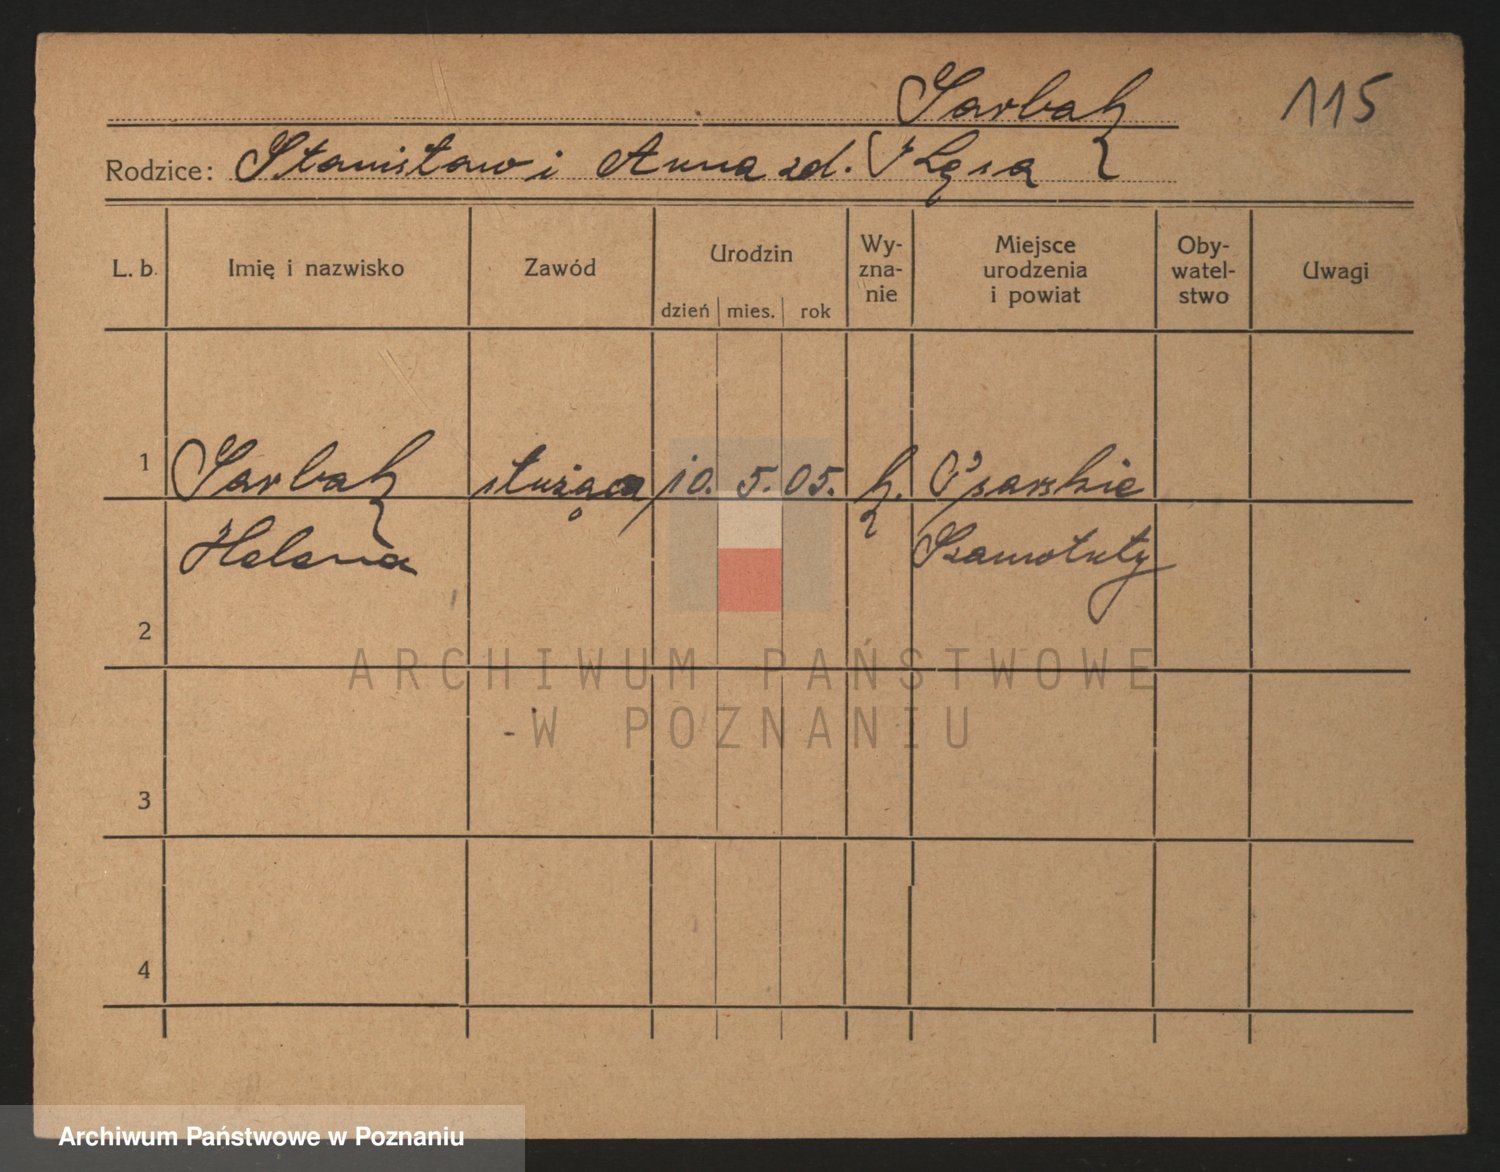 Sarbak 115
Rodzice: Stanisław i Anna zd.
L. b. Imię i nazwisko Zawód Urodzin Wy-zna-nie Miejsce urodzenia i powiat Oby-watel-stwo Uwagi
dzień mies. rok
1 Sarbak służąca 10. 5. 05. k. Psarskie
Helena Szamotuły
2
ARCHIWUM PAŃSTWOWE
W POZNANIU
3
4
Archiwum Państwowe w Poznaniu